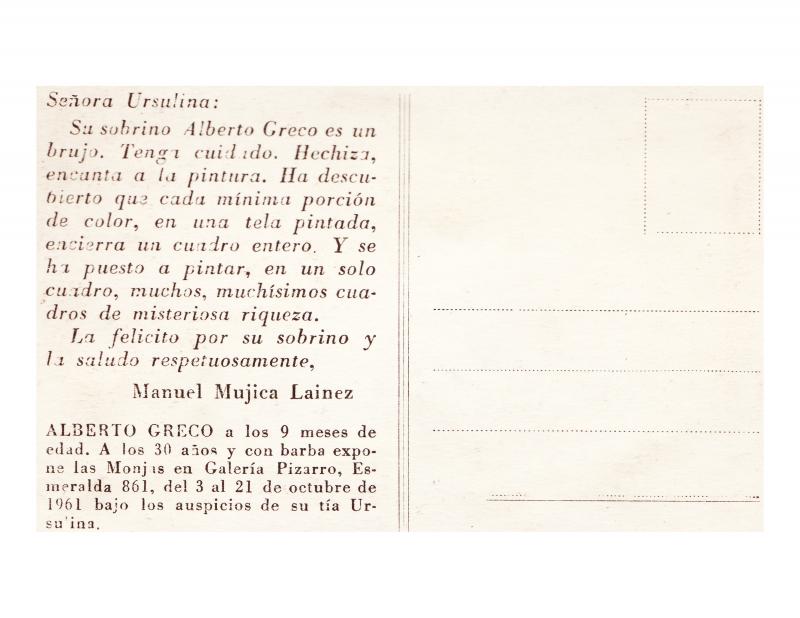 Señora Ursulina:
Su sobrino Alberto Greco es un
brujo. Tenga cuidado. Hechiza,
encanta a la pintura. Ha descu-
bierto que cada mínima porción
de color, en una tela pintada,
encierra un cuadro entero. Y se
ha puesto a pintar, en un solo
cuadro, muchos, muchísimos cua-
dros de misteriosa riqueza.
La felicito por su sobrino y
la saludo respetuosamente,
Manuel Mujica Lainez
ALBERTO GRECO a los 9 meses de
edad. A los 30 años y con barba expo-
ne las Monjas en Galería Pizarro, Es-
meralda 861, del 3 al 21 de octubre de
1961 bajo los auspicios de su tía Ur-
sulina.